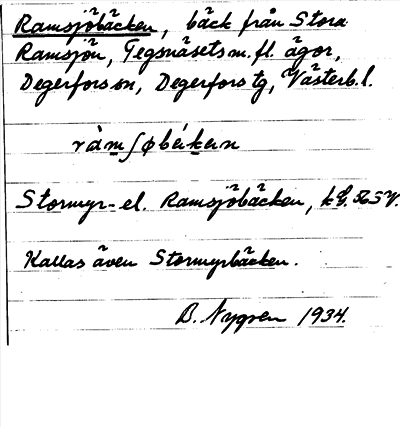 Ramsjöbäcken, bäck från Stora
Ramsjön, Tegsnäsets m. fl. ägor,
Degerfors sn, Degerfors tg, Västerb. l.
ràmʃøbɛ́kɛn
Stormyr- el. Ramsjöbäcken,
Kallas även Stormyrbäcken.
B. Nygren 1934.